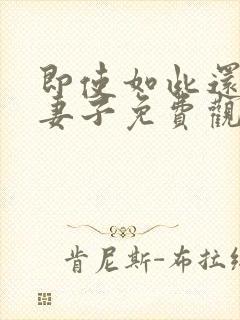 即使如此還
妻子免費觀
肯尼斯-布拉